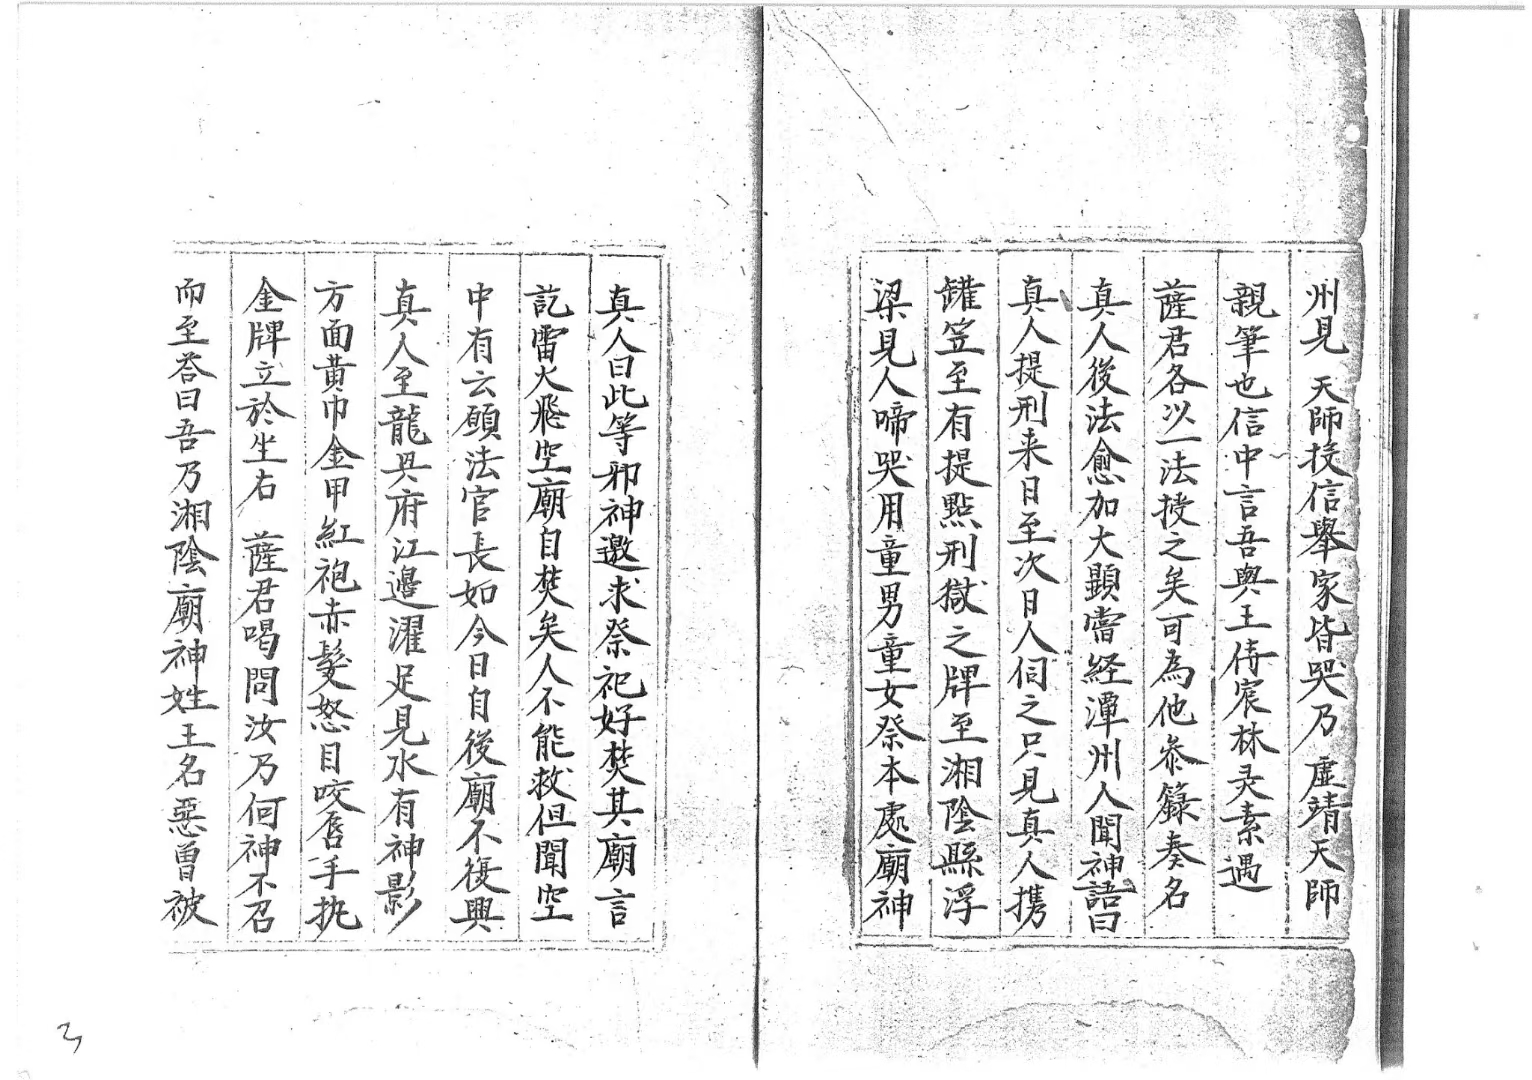 州見 天師投信舉家皆哭乃 虛靖天師
親筆也信中言吾與王侍宸林灵素遇
薩君各以一法授之矣可為他奏籙奏名
真人後法愈加大顯嘗経潭州人聞神語曰
真人提刑来日至次日人伺之只見真人携
罐笠至有提點刑獄之牌至湘陰縣浮
梁見人啼哭用童男童女祭本處廟神
真人曰此等邪神邀求祭祀好焚其廟言
訖雷火飛空廟自焚矣人不能救但聞空
中有云願法官長如今日自後廟不復興
真人至龍興府江邊濯足見水有神影
方面黄巾金甲紅袍赤髮怒目咬唇手执
金牌立於坐右 薩君喝問汝乃何神不召
而至答曰吾乃湘陰廟神姓王名惡曽被
3